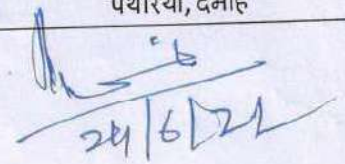 पथरिया, दमोह
24/6/22